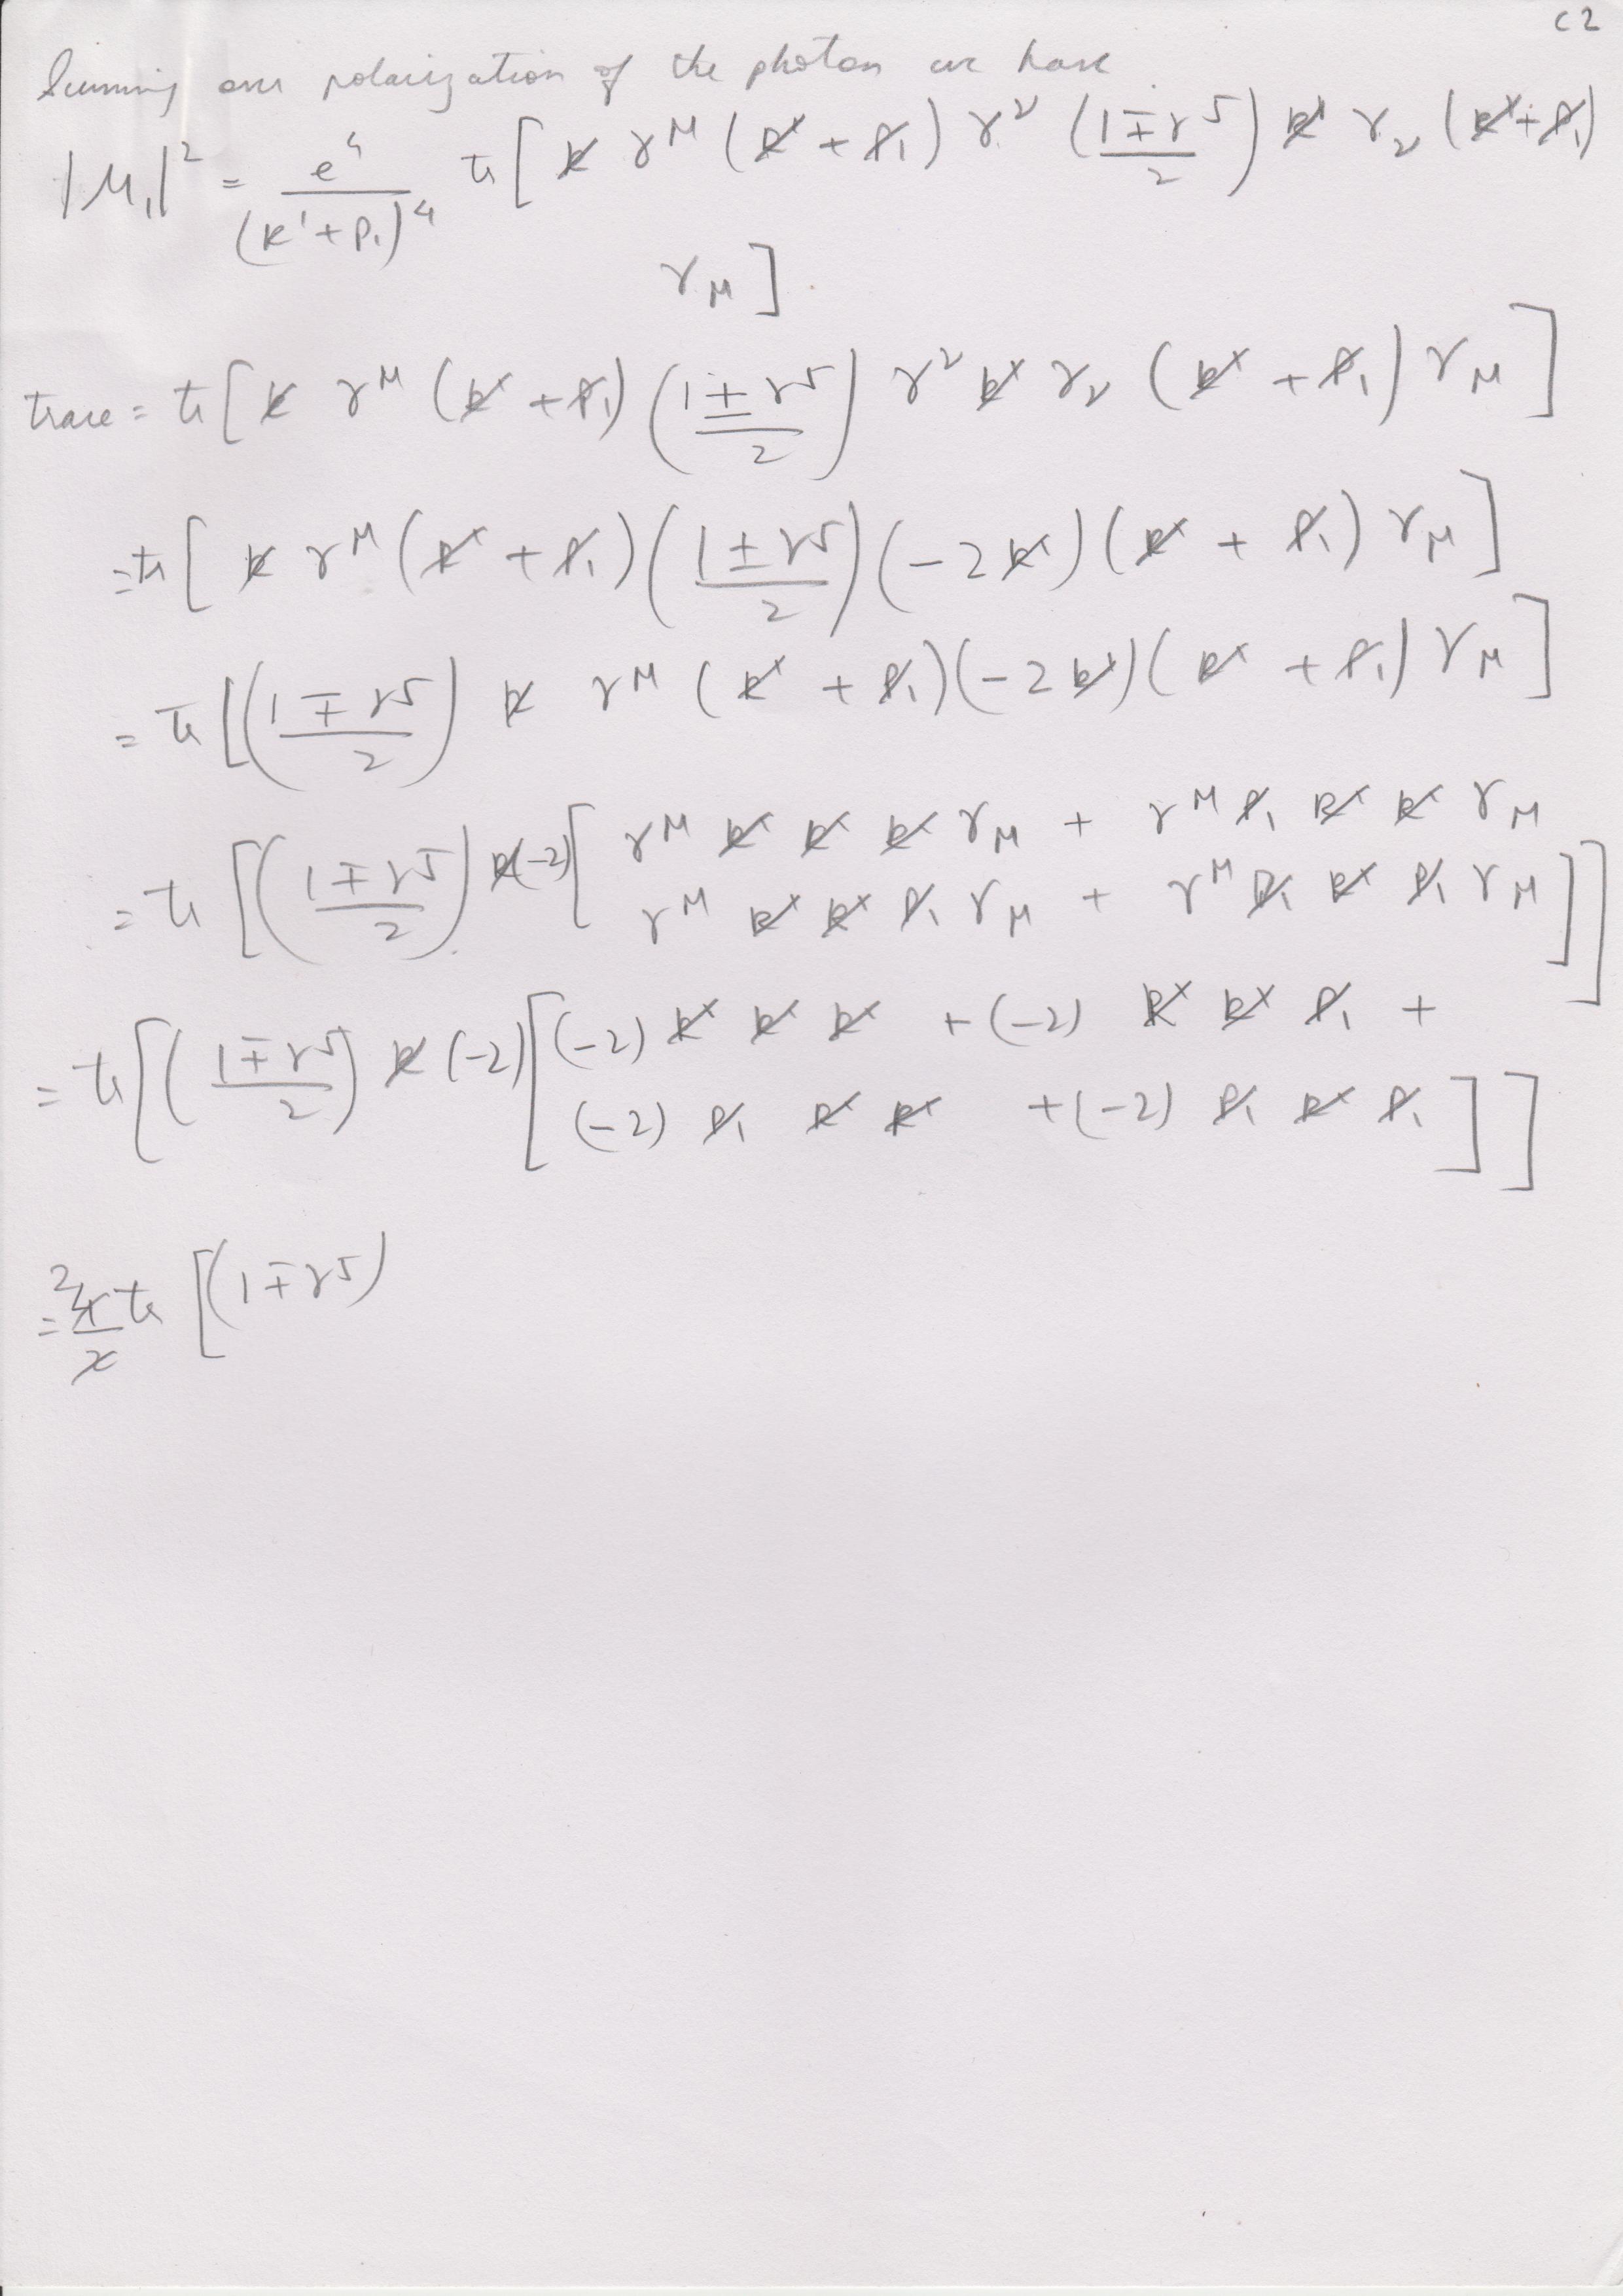 C2
Summing over polarization of the photon we have
|M₁|² = e⁴/(k'+p₁)⁴ tr[k̸ γ^μ (k̸' + p̸₁) γ^ν ((1∓γ⁵)/2) k̸' γ_ν (k̸'+p̸₁)
γ_μ].
trace = tr[k̸ γ^μ (k̸' + p̸₁) ((1±γ⁵)/2) γ^ν k̸' γ_ν (k̸' + p̸₁) γ_μ]
= tr[k̸ γ^μ (k̸' + p̸₁) ((1±γ⁵)/2) (-2k̸') (k̸' + p̸₁) γ_μ]
= tr[((1∓γ⁵)/2) k̸ γ^μ (k̸' + p̸₁)(-2k̸')(k̸' + p̸₁) γ_μ]
= tr[((1∓γ⁵)/2) k̸(-2)[γ^μ k̸' k̸' k̸' γ_μ + γ^μ p̸₁ k̸' k̸' γ_μ
γ^μ k̸' k̸' p̸₁ γ_μ + γ^μ p̸₁ k̸' p̸₁ γ_μ]]
= tr[((1∓γ⁵)/2) k̸ (-2)[(-2) k̸' k̸' k̸' + (-2) k̸' k̸' p̸₁ +
(-2) p̸₁ k̸' k̸' + (-2) p̸₁ k̸' p̸₁]]
= 2 tr [(1∓γ⁵)